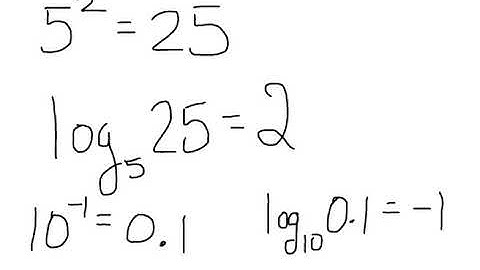 5² = 25
log₅ 25 = 2
10⁻¹ = 0.1 log₁₀ 0.1 = -1